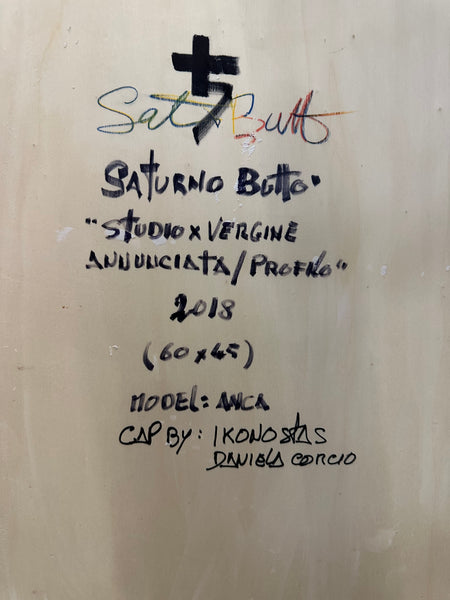 Sat Butt
SATURNO BUTTO'
"STUDIO X VERGINE
ANNUNCIATA / PROFILO"
2018
(60 x 45)
MODEL: ANCA
CAP BY: IKONOSTAS
DANIELA CORCIO